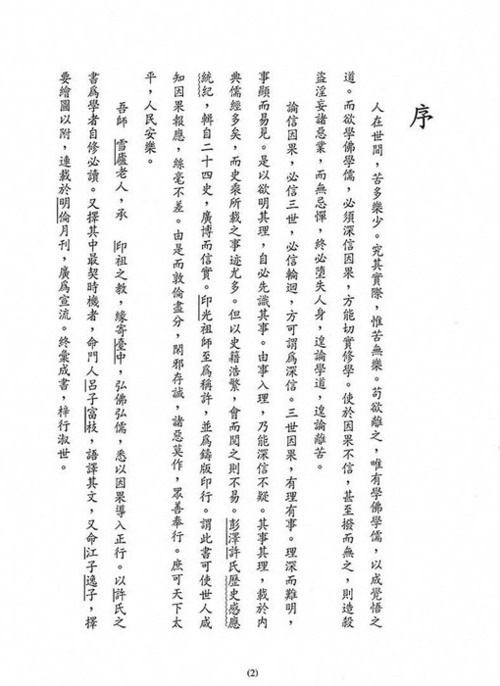 序
人在世間，苦多樂少。究其實際，惟苦無樂。苟欲離之，唯有學佛學儒，以成覺悟之
道。而欲學佛學儒，必須深信因果，方能切實修學。使於因果不信，甚至撥而無之，則造殺
盜淫妄諸惡業，而無忌憚，終必墮失人身，遑論學道，遑論離苦。
論信因果，必信三世，必信輪迴，方可謂為深信。三世因果，有理有事。理深而難明，
事顯而易見。是以欲明其理，自必先識其事。由事入理，乃能深信不疑。其事其理，載於內
典儒經多矣，而史乘所載之事迹尤多。但以史籍浩繁，會而閱之則不易。彭澤許氏歷史感應
統紀，輯自二十四史，廣博而信實。印光祖師至為稱許，並為鑄版印行。謂此書可使世人咸
知因果報應，絲毫不差。由是而敦倫盡分，閑邪存誠，諸惡莫作，眾善奉行。庶可天下太
平，人民安樂。
吾師　雪廬老人，承　印祖之教，緣寄臺中，弘佛弘儒，悉以因果導入正行。以許氏之
書為學者自修必讀。又擇其中最契時機者，命門人呂子富枝，語譯其文，又命江子逸子，擇
要繪圖以附，連載於明倫月刊，廣為宣流。終彙成書，梓行淑世。
(2)